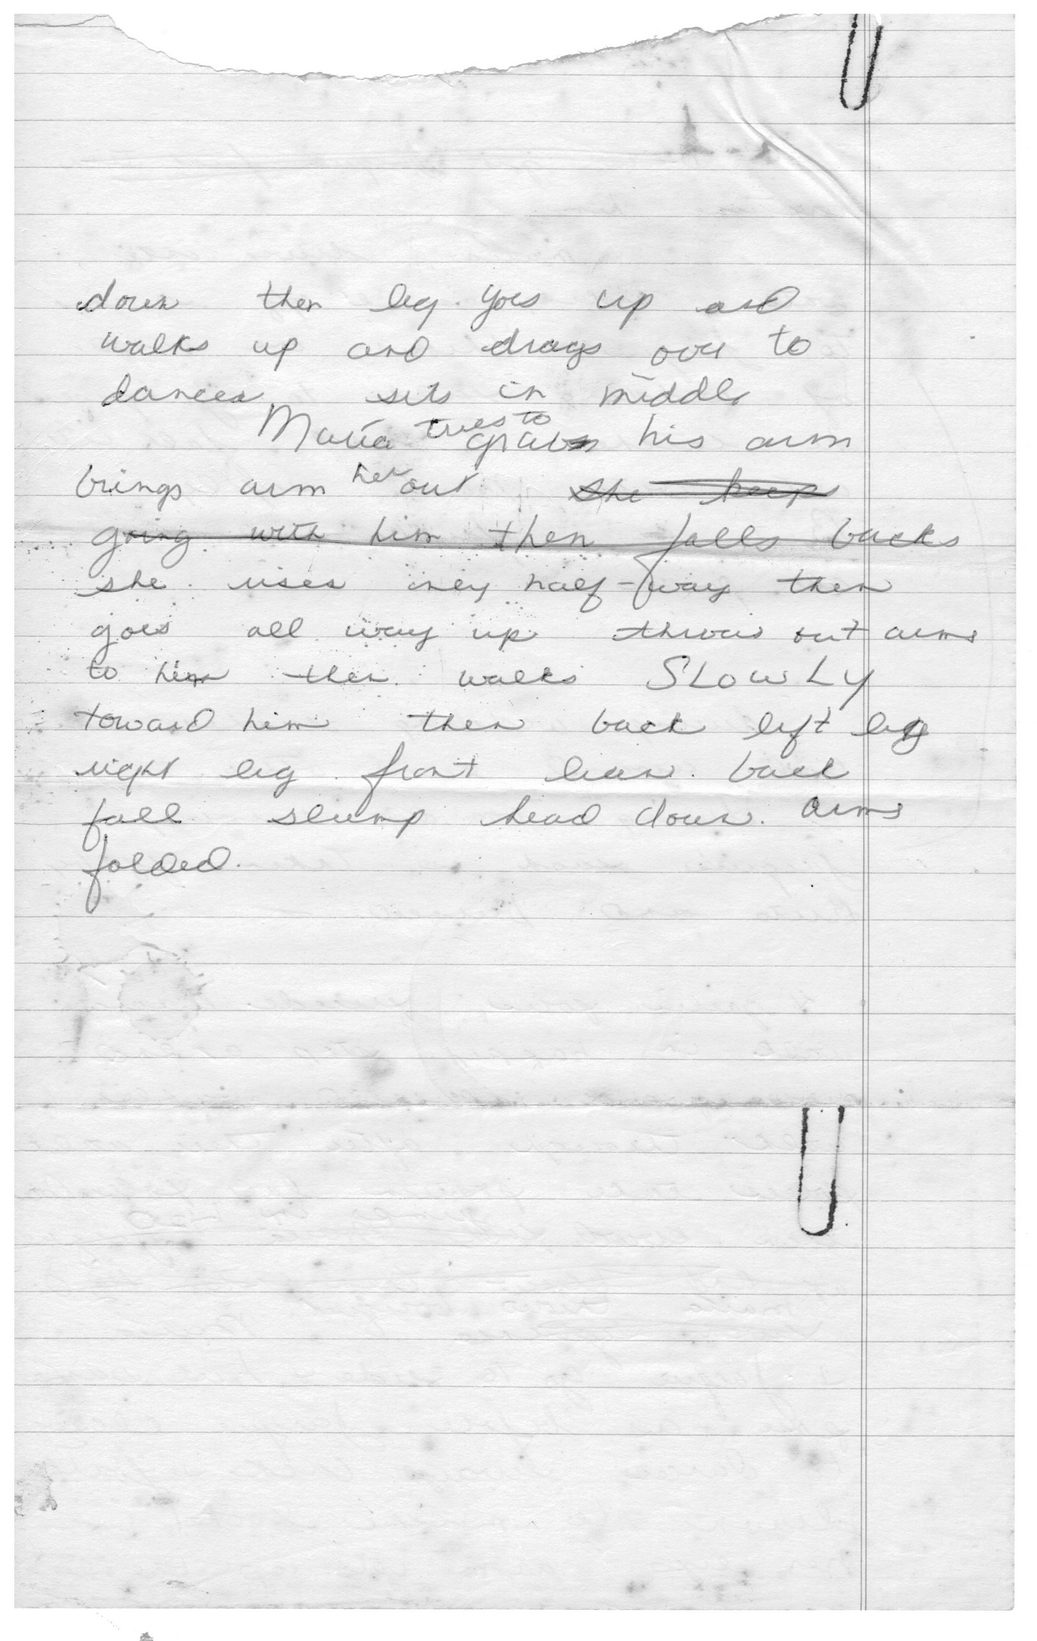 down then leg goes up and
walks up and drags over to
dancer sits in middle
Maria tries to grab his arm
brings arm her out she keep
going with him then falls backs
she rises only half-way then
goes all way up throws out arms
to him then walks SLOWLY
toward him then back left leg
right leg front lean back
fall slump head down. arms
folded.